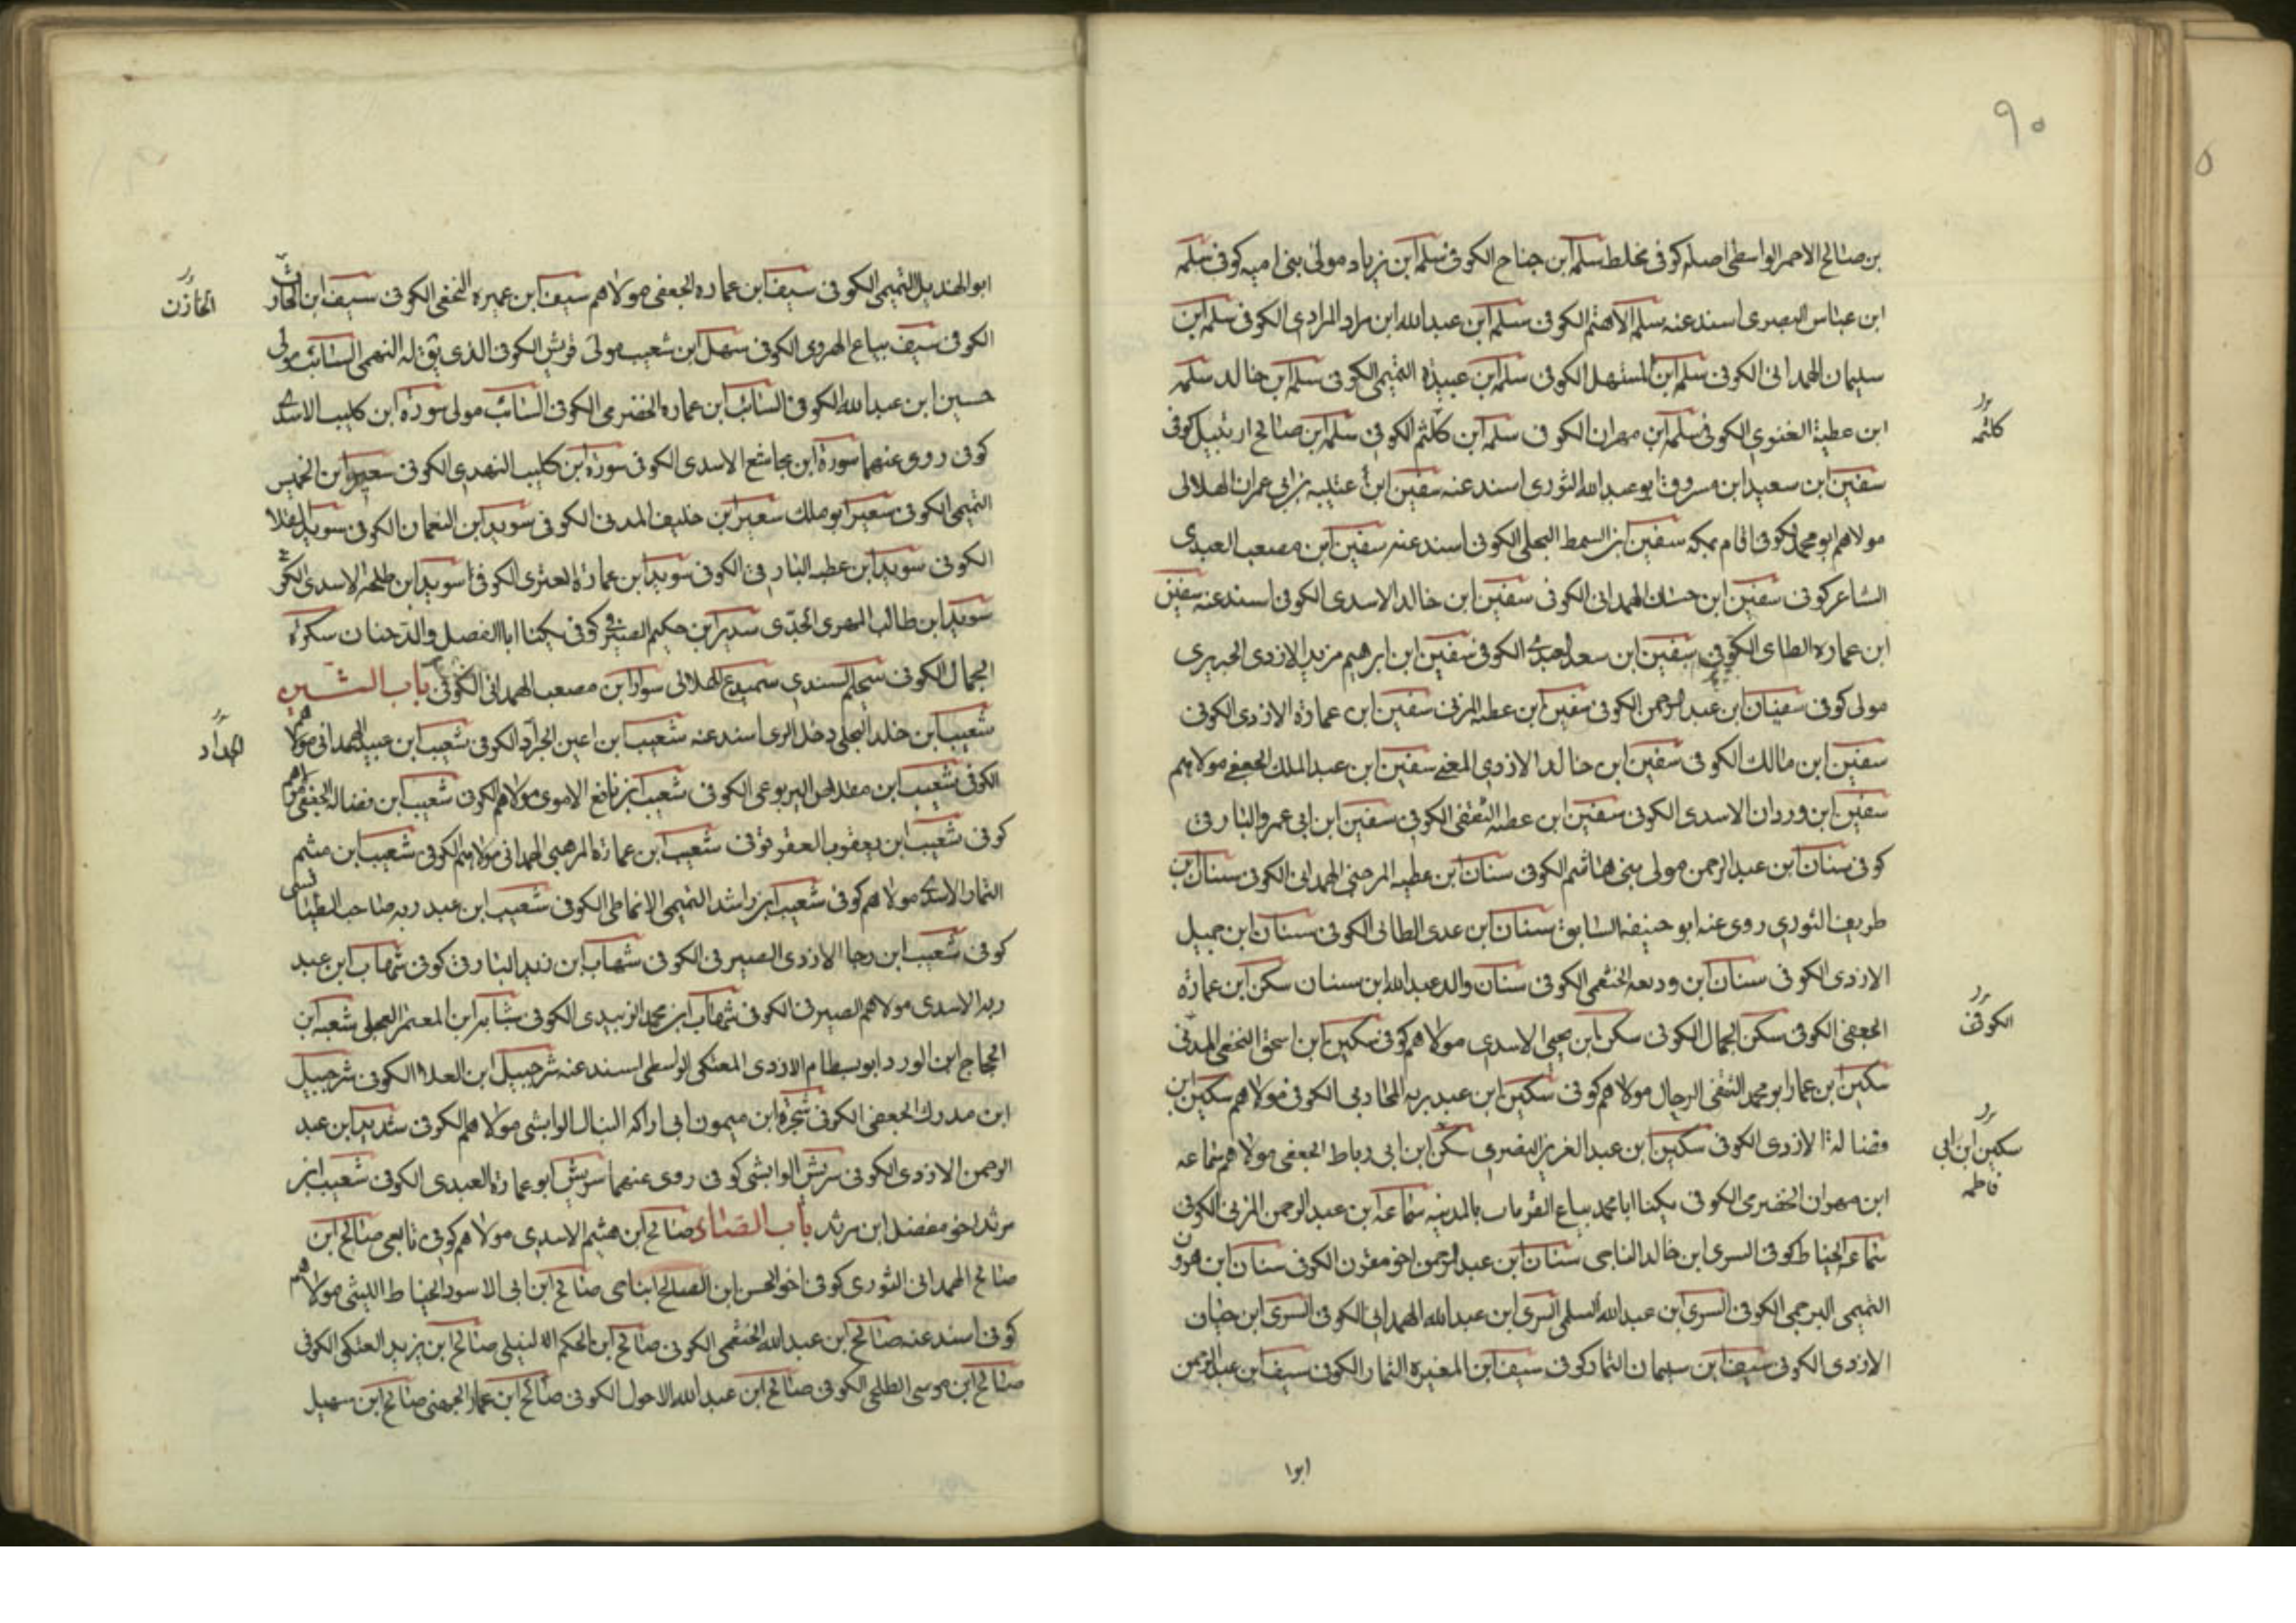 ٩٠
بن صالح الاحمر الواسطى اصله كوفى يخلط سلمه ابن جناح الكوفى سلمه ابن زياد مولى بنى اميه كوفى سلمه
ابن عباس البصرى اسند عنه سلم الاهتم الكوفى سلم ابن عبد الله ابن مراد المرادى الكوفى سلمه ابن
سليمان الهمدانى الكوفى سلم ابن المستهل الكوفى سلم ابن عبيدة التميمى الكوفى سلم ابن خالد سلمه
ابن عطية الغنوى الكوفى سلمه ابن مهران الكوفى سلمه ابن كلثم الكوفى سلمه ابن صالح اردبيل كوفى
كلثمه
سفين ابن سعيد ابن مسروق ابو عبد الله الثورى اسند عنه سفين ابن عتيبه بن ابى عمران الهلالى
مولاهم ابو محمد الكوفى اقام بمكه سفين ابن السمط البجلى الكوفى اسند عنه سفين ابن مصعب العبدى
الشاعر كوفى سفين ابن حسان الهمدانى الكوفى سفين ابن خالد الاسدى الكوفى اسند عنه سفين
ابن عماره الطاى الكوفى سفين ابن سعد العبدى الكوفى سفين ابن ابرهيم مزيد الازدى الجريرى
مولى كوفى سفيان ابن عبد الرحمن الكوفى سفين ابن عطيه المزنى سفين ابن عمارة الازدى الكوفى
سفين ابن مالك الكوفى سفين ابن خالد الازدى المغنى سفين ابن عبد الملك الجعفى مولاهم
سفين ابن وردان الاسدى الكوفى سفين ابن عطيه الثقفى الكوفى سفين ابن ابى عمرو البارقى
كوفى سنان ابن عبد الرحمن مولى بنى هاشم الكوفى سنان ابن عطيه المرهبى الهمدانى الكوفى سنان بن
طريف الثورى روى عنه ابو حنيفه السابق سنان ابن عدى الطائى الكوفى سنان ابن جميل
الازدى الكوفى سنان ابن وديعه الخثعمى الكوفى سنان والد عبد الله ابن سنان سكن ابن عمارة
الجعفى الكوفى سكن الجمال الكوفى سكن ابن يحيى الاسدى مولاهم كوفى سكين ابن اسحق النخعى المدنى
الكوفى
سكين ابن عمار ابو محمد الثقفى الرجال مولاهم كوفى سكين ابن عبد ربه المحاربى الكوفى مولاهم سكين ابن
فضالة الازدى الكوفى سكين ابن عبد العزيز البصرى سكن ابن ابى رباط الجعفى مولاهم سماعه
سكين ابن ابى
فاطمه
ابن مهران الحضرمى الكوفى يكنا ابا محمد بياع القز مات بالمدينه سماعه ابن عبد الرحمن المزنى الكوفى
سماعه الحناط كوفى السرى ابن خالد الناجى سنان ابن عبد الرحمن اخو مقرن الكوفى سنان ابن هرون
التميمى البرجمى الكوفى السرى ابن عبد الله السلمى السرى ابن عبد الله الهمدانى الكوفى السرى ابن حيان
الازدى الكوفى سيف ابن سليمان التمار كوفى سيف ابن المغيره التمار الكوفى سيف ابن عبد الرحمن
ابوا
ابو الهذيل التميمى الكوفى سيف ابن عماره الجعفى مولاهم سيف ابن عميره النخعى الكوفى سيف ابن الحارث
الخازن
الكوفى سيف بياع الهروى الكوفى سهل ابن شعيب مولى قريش الكوفى الذى يق له النهمى السائب مولى
حسين ابن عبد الله الكوفى السائب ابن عماره الحضرمى الكوفى السائب مولى سورة ابن كليب الاسدى
كوفى روى عنهما سورة ابن مجاشع الاسدى الكوفى سورة ابن كليب النهدى الكوفى سعير ابن الخميس
التميمى الكوفى سعير ابو ملك سعير ابن خليف المدنى الكوفى سويد ابن النعمان الكوفى سويد القلا
الكوفى سويد ابن عطيه البارقى الكوفى سويد ابن عمارة العنزى الكوفى سويد ابن طلحة الاسدى الكوفى
سويد ابن طالب المهرى الجدى سدير ابن حكيم الصيرفى كوفى يكنا ابا الفضل والد حنان سكرة
الجمال الكوفى سحيم السندى سميدع الهلالى سوار ابن مصعب الهمدانى الكوفى باب الشين
شعيب ابن خلد البجلى دخل الرى اسند عنه شعيب ابن اعين الحراد الكوفى شعيب ابن عبيد الهمدانى مولاهم
الحداد
الكوفى شعيب ابن مقداس اليربوعى الكوفى شعيب ابن نافع الاموى مولاهم الكوفى شعيب ابن فضاله الجعفى مولاهم
كوفى شعيب ابن يعقوب العقرقوفى شعيب ابن عمارة المرهبى الهمدانى مولاهم الكوفى شعيب ابن ميثم
التمار الاسدى مولاهم كوفى شعيب ابن راشد التميمى الانماطى الكوفى شعيب ابن عبد ربه صاحب الطيالسى
كوفى شعيب ابن رجا الازدى الصيرفى الكوفى شهاب ابن زيد البارقى كوفى شهاب ابن عبد
ربه الاسدى مولاهم الصيرفى الكوفى شهاب ابن محمد الزبيدى الكوفى ابن المعتمر العجلى شعبه ابن
الحجاج ابن الورد ابو بسطام الازدى المعتكى الواسطى اسند عنه شرحبيل ابن العلا الكوفى شرحبيل
ابن مدرك الجعفى الكوفى شجرة ابن ميمون ابى اراكه النبال الوابشى مولاهم الكوفى شديد ابن عبد
الرحمن الازدى الكوفى شريش الوابشى كوفى روى عنهما شريش ابو عمارة العبدى الكوفى شعيب ابن
مرثد اخو مفضل ابن مرثد باب الصاد صالح ابن هشيم الاسدى مولاهم كوفى تابعى صالح ابن
صالح الهمدانى الثورى كوفى اخو الحسن ابن الصالح ابناحى صالح ابن ابى الاسود الحناط الليثى مولاهم
كوفى اسند عنه صالح ابن عبد الله الخثعمى الكوفى صالح ابن الحكم النيلى صالح ابن يزيد العتكى الكوفى
صالح ابن موسى الطلحى الكوفى صالح ابن عبد الله الاحول الكوفى صالح ابن عمار الجهنى صالح ابن سهيل